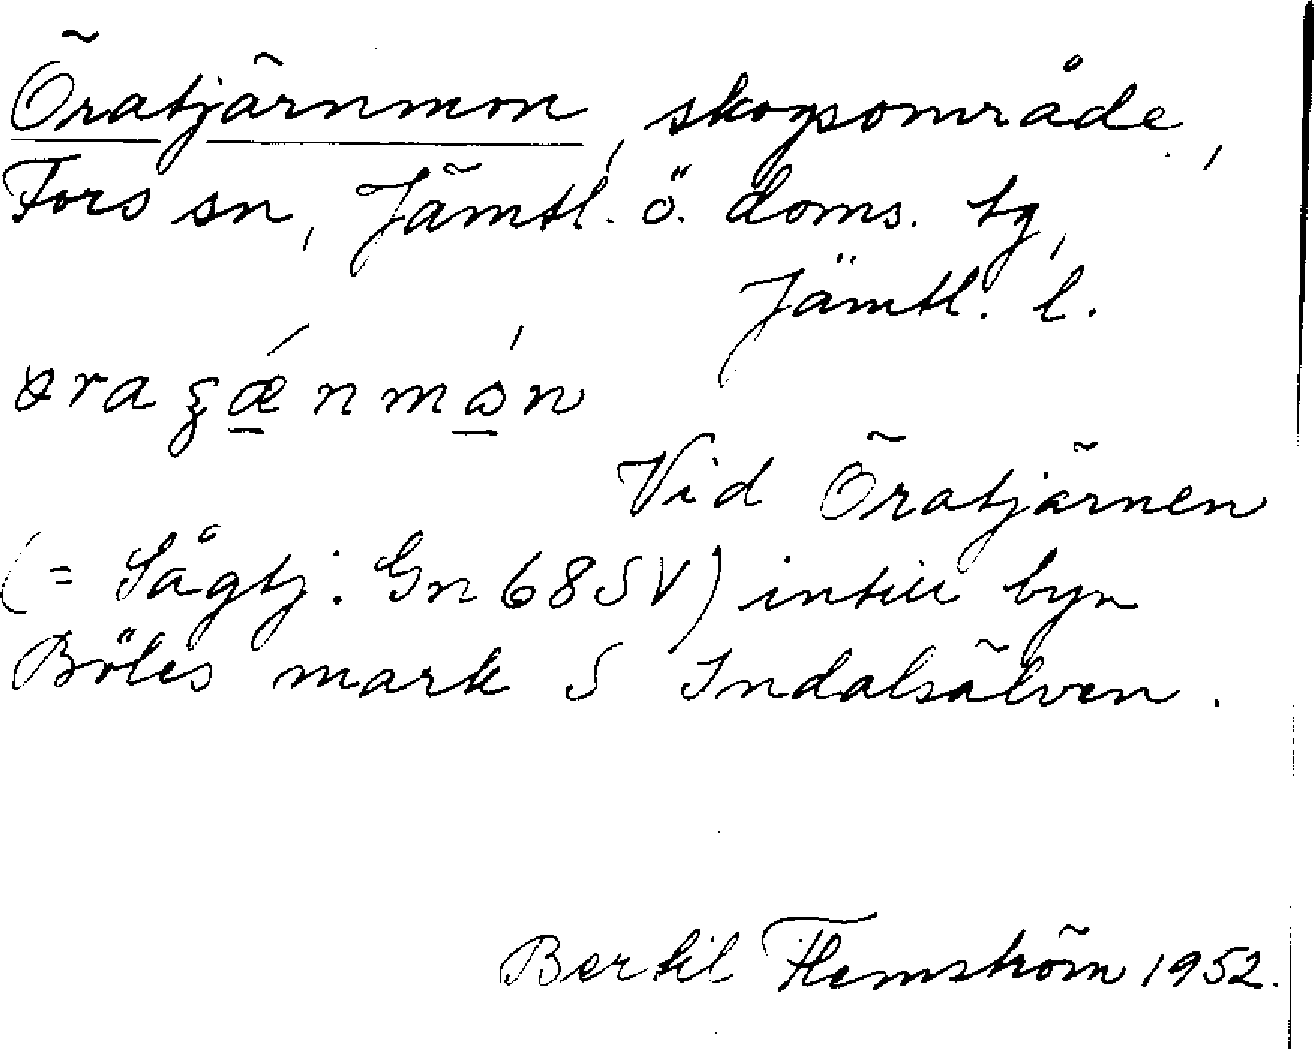 Öratjärnmon, skogsområde,
Fors sn, Jämtl. ö. doms. tg,
Jämtl. l.
Vid Öratjärnen
(= Sågtj. Gn 68 SV) intill byn
Böles mark S Indalsälven.
Bertil Flemström 1952.